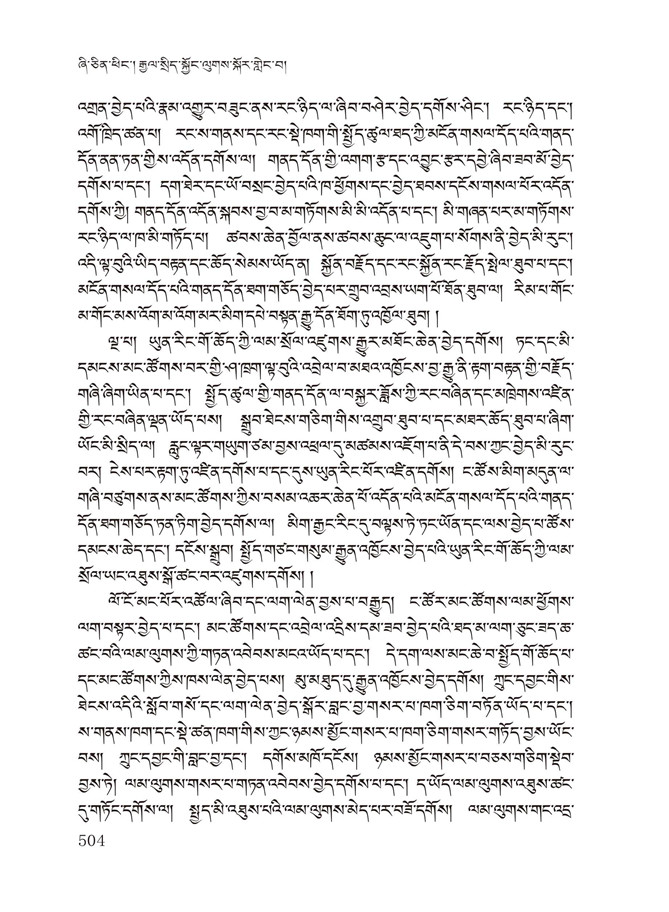 ཞི་ཅིན་ཕིང་། རྒྱལ་སྲིད་སྐྱོང་ལུགས་སྐོར་གླེང་བ།
འགྲན་བྱེད་པའི་རྣམ་འགྱུར་བཟུང་ནས་རང་ཉིད་ལ་ཞིབ་བཤེར་བྱེད་དགོས་ཤིང་། རང་ཉིད་དང་།
འགོ་ཁྲིད་ཚན་པ། རང་ས་གནས་དང་རང་སྡེ་ཁག་གི་སྤྱོད་ཚུལ་ཐད་ཀྱི་མངོན་གསལ་དོད་པའི་གནད་
དོན་ནན་ཏན་གྱིས་འདོན་དགོས་ལ། གནད་དོན་གྱི་འགག་རྩ་དང་འབྱུང་རྩར་དབྱེ་ཞིབ་ཟབ་མོ་བྱེད་
དགོས་པ་དང་། དག་ཐེར་དང་ཡོ་བསྲང་བྱེད་པའི་ཁ་ཕྱོགས་དང་བྱེད་ཐབས་དངོས་གསལ་པོར་འདོན་
དགོས་ཀྱི། གནད་དོན་འདོན་སྐབས་བྱ་བ་མ་གཏོགས་མི་མི་འདོན་པ་དང་། མི་གཞན་པར་མ་གཏོགས་
རང་ཉིད་ལ་ཁ་མི་གཏོད་པ། ཚབས་ཆེན་བྱོལ་ནས་ཚབས་ཆུང་ལ་འཇུག་པ་སོགས་ནི་བྱེད་མི་རུང་།
འདི་ལྟ་བུའི་ཡིད་བརྟན་དང་ཆོད་སེམས་ཡོད་ན། སྐྱོན་བརྗོད་དང་རང་སྐྱོན་རང་རྗོད་སྤེལ་ཐུབ་པ་དང་།
མངོན་གསལ་དོད་པའི་གནད་དོན་ཐག་གཅོད་བྱེད་པར་གྲུབ་འབྲས་ཡག་པོ་ཐོན་ཐུབ་ལ། རིམ་པ་གོང་
མ་གོང་མས་འོག་མ་འོག་མར་མིག་དཔེ་བསྟན་རྒྱུ་དོན་ཐོག་ཏུ་འཁྱོལ་ཐུབ། །
ལྔ་པ། ཡུན་རིང་གོ་ཆོད་ཀྱི་ལམ་སྲོལ་འཛུགས་རྒྱུར་མཐོང་ཆེན་བྱེད་དགོས། ཏང་དང་མི་
དམངས་མང་ཚོགས་བར་གྱི་ཤ་ཁྲག་ལྟ་བུའི་འབྲེལ་བ་མཐའ་འཁྱོངས་བྱ་རྒྱུ་ནི་རྟག་བརྟན་གྱི་བརྗོད་
གཞི་ཞིག་ཡིན་པ་དང་། སྤྱོད་ཚུལ་གྱི་གནད་དོན་ལ་བསྐྱར་ལྡོས་ཀྱི་རང་བཞིན་དང་མཁྲེགས་འཛིན་
གྱི་རང་བཞིན་ལྡན་ཡོད་པས། སྒྲུབ་ཐེངས་གཅིག་གིས་འགྲུབ་ཐུབ་པ་དང་མཐར་ཆོད་ཐུབ་པ་ཞིག་
ཡོང་མི་སྲིད་ལ། རླུང་ལྟར་གཡུག་ཙམ་བྱས་འཕྲལ་དུ་མཚམས་འཇོག་པ་ནི་དེ་བས་ཀྱང་བྱེད་མི་རུང་
བར། ངེས་པར་རྟག་ཏུ་འཛིན་དགོས་པ་དང་དུས་ཡུན་རིང་པོར་འཛིན་དགོས། ང་ཚོས་མིག་མདུན་ལ་
གཞི་བཙུགས་ནས་མང་ཚོགས་ཀྱིས་བསམ་འཆར་ཆེན་པོ་འདོན་པའི་མངོན་གསལ་དོད་པའི་གནད་
དོན་ཐག་གཅོད་ཏན་ཏིག་བྱེད་དགོས་ལ། མིག་རྒྱང་རིང་དུ་བལྟས་ཏེ་ཏང་ཡོན་དང་ལས་བྱེད་པ་ཚོས་
དམངས་ཆེད་དང་། དངོས་སྒྲུབ། སྤྱོད་གཙང་གསུམ་རྒྱུན་འཁྱོངས་བྱེད་པའི་ཡུན་རིང་གོ་ཆོད་ཀྱི་ལམ་
སྲོལ་ཡང་འཐུས་སྒོ་ཚང་བར་འཛུགས་དགོས། །
ལོ་ངོ་མང་པོར་འཚོལ་ཞིབ་དང་ལག་ལེན་བྱས་པ་བརྒྱུད། ང་ཚོར་མང་ཚོགས་ལམ་ཕྱོགས་
ལག་བསྟར་བྱེད་པ་དང་། མང་ཚོགས་དང་འབྲེལ་འདྲིས་དམ་ཟབ་བྱེད་པའི་ཐད་མ་ལག་ཅུང་ཟད་ཆ་
ཚང་བའི་ལམ་ལུགས་ཀྱི་གཏན་འབེབས་མངའ་ཡོད་པ་དང་། དེ་དག་ལས་མང་ཆེ་བ་སྤྱོད་གོ་ཆོད་པ་
དང་མང་ཚོགས་ཀྱིས་ཁས་ལེན་བྱེད་པས། མུ་མཐུད་དུ་རྒྱུན་འཁྱོངས་བྱེད་དགོས། ཀྲུང་དབྱང་གིས་
ཐེངས་འདིའི་སློབ་གསོ་དང་ལག་ལེན་བྱེད་སྒོར་བླང་བྱ་གསར་པ་ཁག་ཅིག་བཏོན་ཡོད་པ་དང་།
ས་གནས་ཁག་དང་སྡེ་ཚན་ཁག་གིས་ཀྱང་ཉམས་མྱོང་གསར་པ་ཁག་ཅིག་གསར་གཏོད་བྱས་ཡོང་
བས། ཀྲུང་དབྱང་གི་བླང་བྱ་དང་། དགོས་མཁོ་དངོས། ཉམས་མྱོང་གསར་པ་བཅས་གཅིག་སྡེབ་
བྱས་ཏེ། ལམ་ལུགས་གསར་པ་གཏན་འབེབས་བྱེད་དགོས་པ་དང་། ད་ཡོད་ལམ་ལུགས་འཐུས་ཚང་
དུ་གཏོང་དགོས་ལ། སྤྱད་མི་འཐུས་པའི་ལམ་ལུགས་མེད་པར་བཟོ་དགོས། ལམ་ལུགས་གང་འདྲ་
504